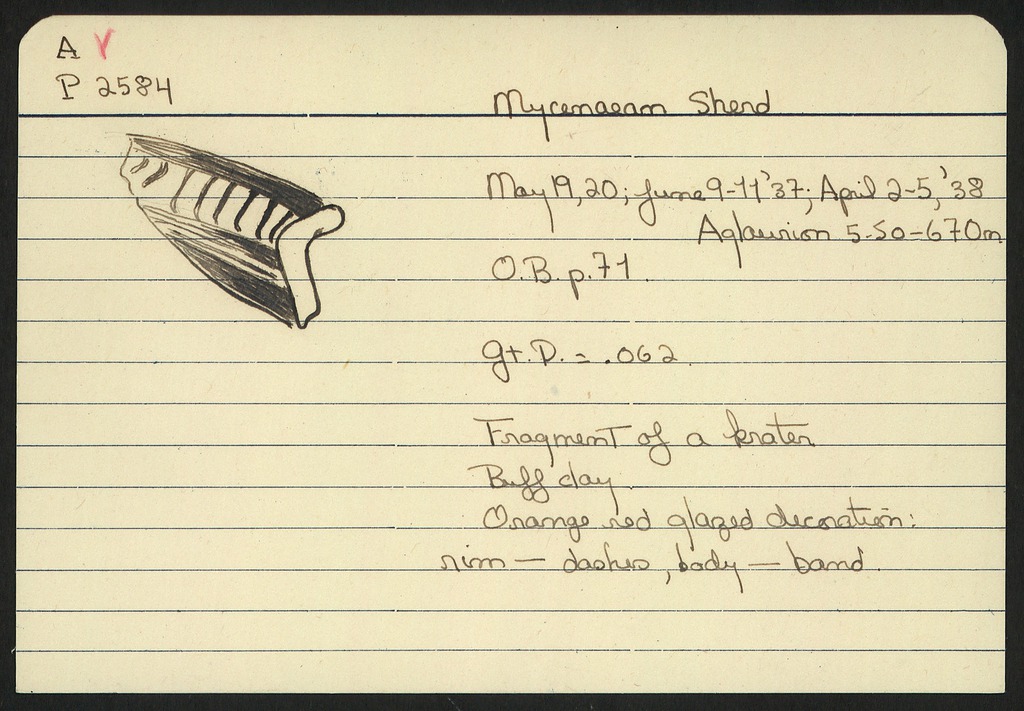 A
P 2584
Mycenaean Sherd
May 19, 20; June 9-11 '37; April 2-5, '38
Aglaurion 5-50-670m
O.B. p. 71
gt. D. = .062
Fragment of a krater
Buff clay
Orange red glazed decoration:
rim — dashes, body — band